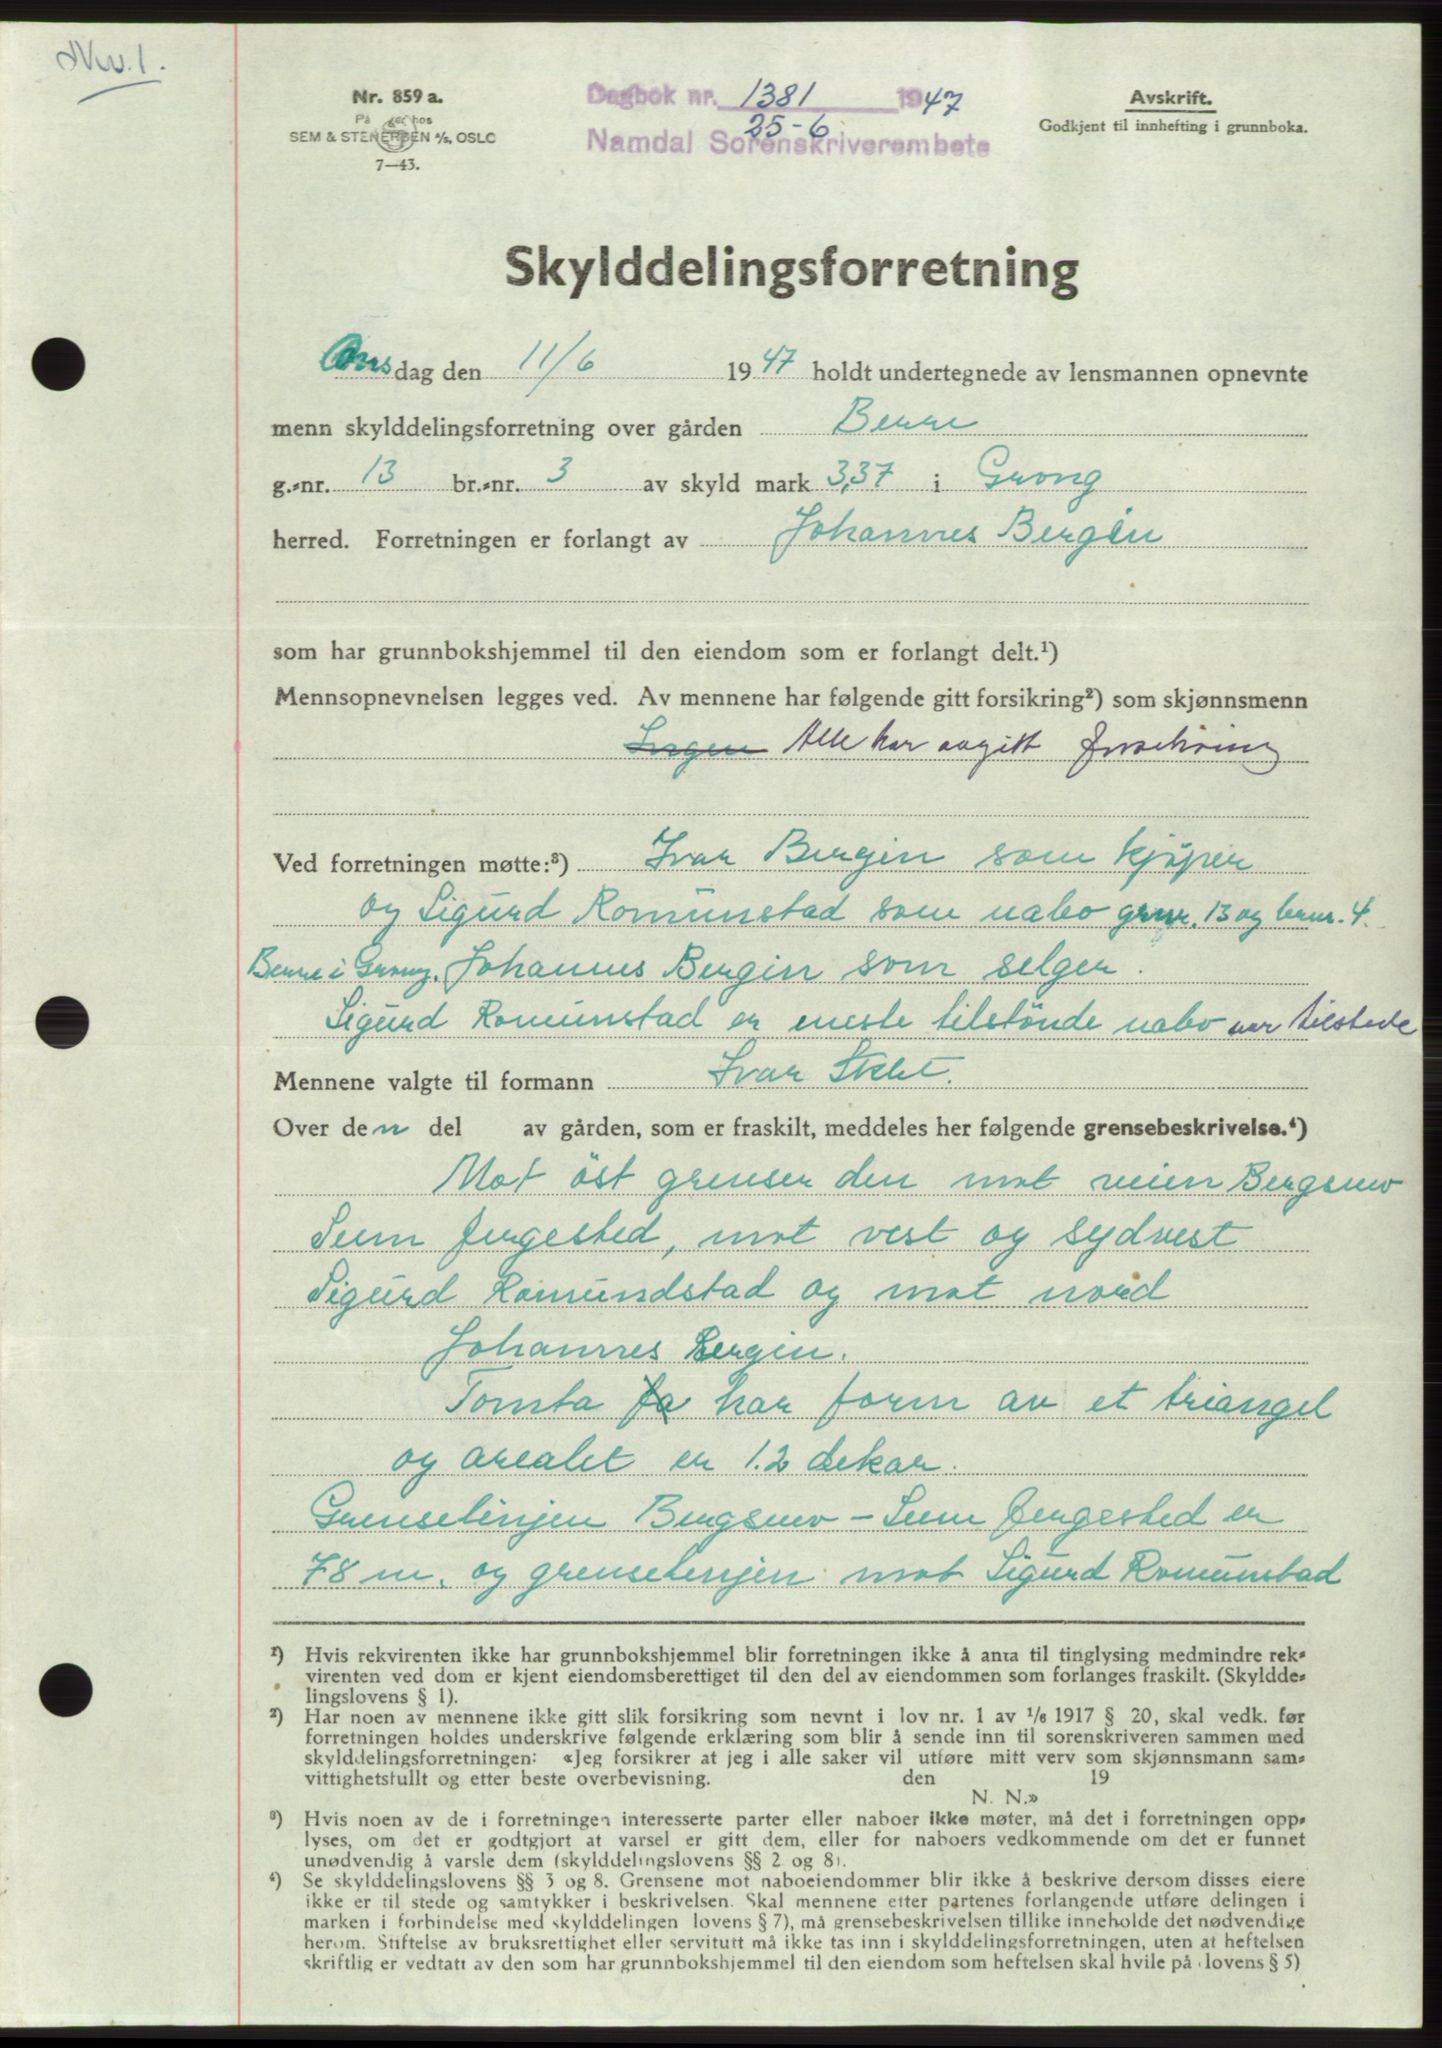 Nr. 859 a.
SEM & STENERSEN A/S, OSLO
7—43.
Dagbok nr. 1381 1947
25-6
Namdal Sorenskriverembete
Avskrift.
Godkjent til innhefting i grunnboka.
Skylddelingsforretning
Onsdag den 11/6 1947 holdt undertegnede av lensmannen opnevnte
menn skylddelingsforretning over gården Berre
g.-nr. 13 br.-nr. 3 av skyld mark 3,37 i Grong
herred. Forretningen er forlangt av Johannes Bergin
som har grunnbokshjemmel til den eiendom som er forlangt delt.¹)
Mennsopnevnelsen legges ved. Av mennene har følgende gitt forsikring²) som skjønnsmenn
Ingen Alle har avgitt forsikring
Ved forretningen møtte:³) Ivar Bergin som kjøper
og Sigurd Romunstad som nabo grnr. 13 og brnr. 4.
Berre i Grong. Johannes Bergin som selger.
Sigurd Romunstad er eneste tilstønde nabo var tilstede
Mennene valgte til formann Ivar
Over den del av gården, som er fraskilt, meddeles her følgende grensebeskrivelse.⁴)
Mot öst grenser den mot veien Bergsmo
Seem fergested, mot vest og sydvest
Sigurd Romundstad og mot nord
Johannes Bergin.
Tomta fa har form av et triangel
og arealet er 1.2 dekar.
Grenselinjen Bergsmo – Seem fergested er
78 m. og grenselinjen mot Sigurd Romunstad
¹) Hvis rekvirenten ikke har grunnbokshjemmel blir forretningen ikke å anta til tinglysing medmindre rek-
virenten ved dom er kjent eiendomsberettiget til den del av eiendommen som forlanges fraskilt. (Skyldde-
lingslovens § 1).
²) Har noen av mennene ikke gitt slik forsikring som nevnt i lov nr. 1 av 1/6 1917 § 20, skal vedk. før
forretningen holdes underskrive følgende erklæring som blir å sende inn til sorenskriveren sammen med
skylddelingsforretningen: «Jeg forsikrer at jeg i alle saker vil utføre mitt verv som skjønnsmann sam-
vittighetsfullt og etter beste overbevisning. den 19
N. N.»
³) Hvis noen av de i forretningen interesserte parter eller naboer ikke møter, må det i forretningen opp-
lyses, om det er godtgjort at varsel er gitt dem, eller for naboers vedkommende om det er funnet
unødvendig å varsle dem (skylddelingslovens §§ 2 og 8).
⁴) Se skylddelingslovens §§ 3 og 8. Grensene mot naboeiendommer blir ikke å beskrive dersom disses eiere
ikke er til stede og samtykker i beskrivelsen. Skal mennene etter partenes forlangende utføre delingen i
marken i forbindelse med skylddelingen lovens § 7), må grensebeskrivelsen tillike inneholde det nødvendige
herom. Stiftelse av bruksrettighet eller servitutt må ikke tas inn i skylddelingsforretningen, uten at heftelsen
skriftlig er vedtatt av den som har grunnbokshjemmel til den eiendom som heftelsen skal hvile på lovens § 5)